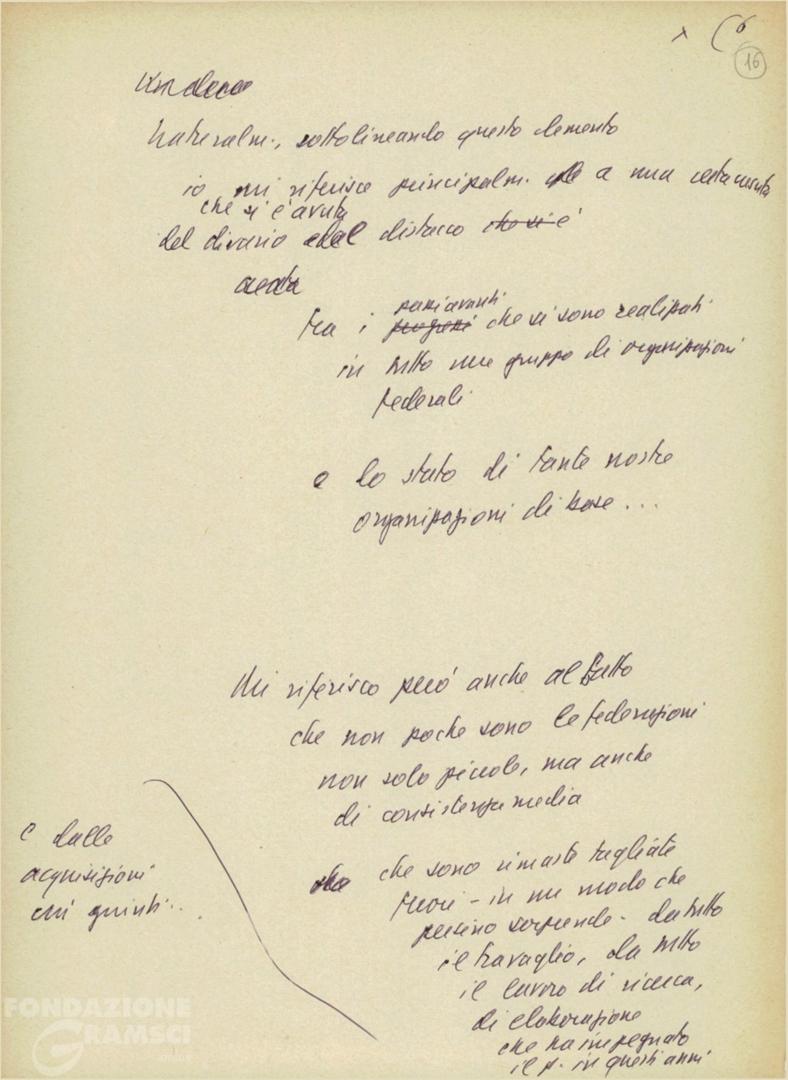 6
16
Naturalm., sottolineando questo elemento
io mi riferisco principalm. a una certa
che si è avuta
del divario e del distacco che si è
avuta
tra i progressi che si sono realizzati
passi avanti
in tutto un gruppo di organizzazioni
federali
e lo stato di tante nostre
organizzazioni di base ...
Mi riferisco però anche al fatto
che non poche sono le federazioni
non solo piccole, ma anche
di consistenza media
che che sono rimaste tagliate
fuori - in un modo che
persino sorprende - da tutto
il travaglio, da tutto
il lavoro di ricerca,
di elaborazione
che ha impegnato
il p. in questi anni
e dalle
acquisizioni
cui giunti...
FONDAZIONE
GRAMSCI